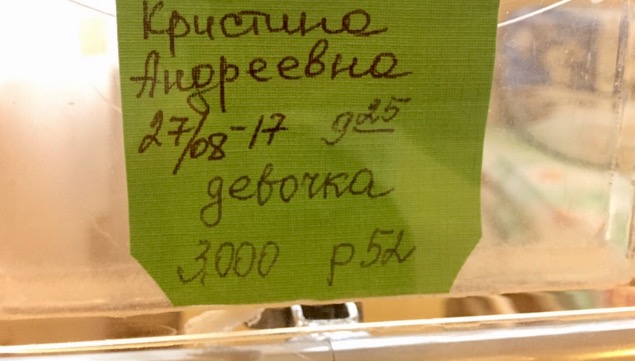 Кристина
Андреевна
27/08-17 9 25
девочка
3,000 р 52